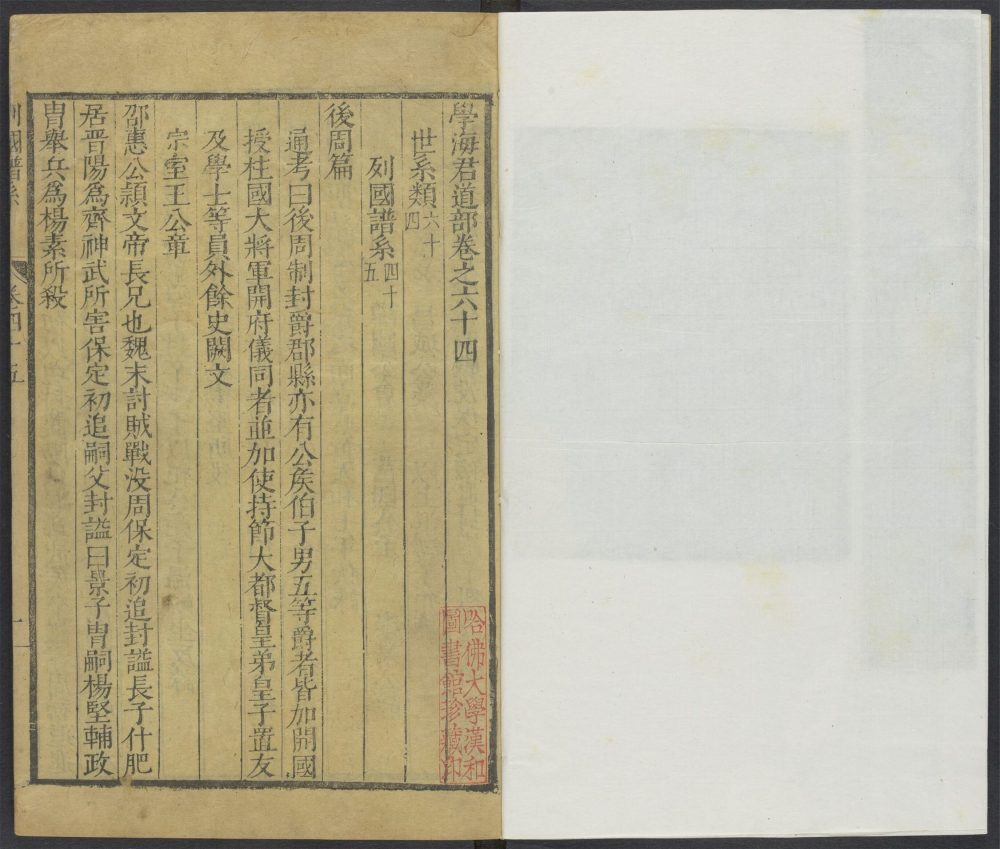 學海君道部卷之六十四
世系類六十四
列國譜系四十五
後周篇
通考曰後周制封爵郡縣亦有公侯伯子男五等爵者皆加開國
授柱國大將軍開府儀同者並加使持節大都督皇弟皇子置友
及學士等員外餘史闕文
宗室王公章
邵惠公顥文帝長兄也魏末討賊戰没周保定初追封謚長子什肥
居晋陽爲齊神武所害保定初追嗣父封謚曰景子冑嗣楊堅輔政
冑舉兵爲楊素所殺
列國譜系
卷四十五
一
哈佛大學漢和
圖書館珍藏印